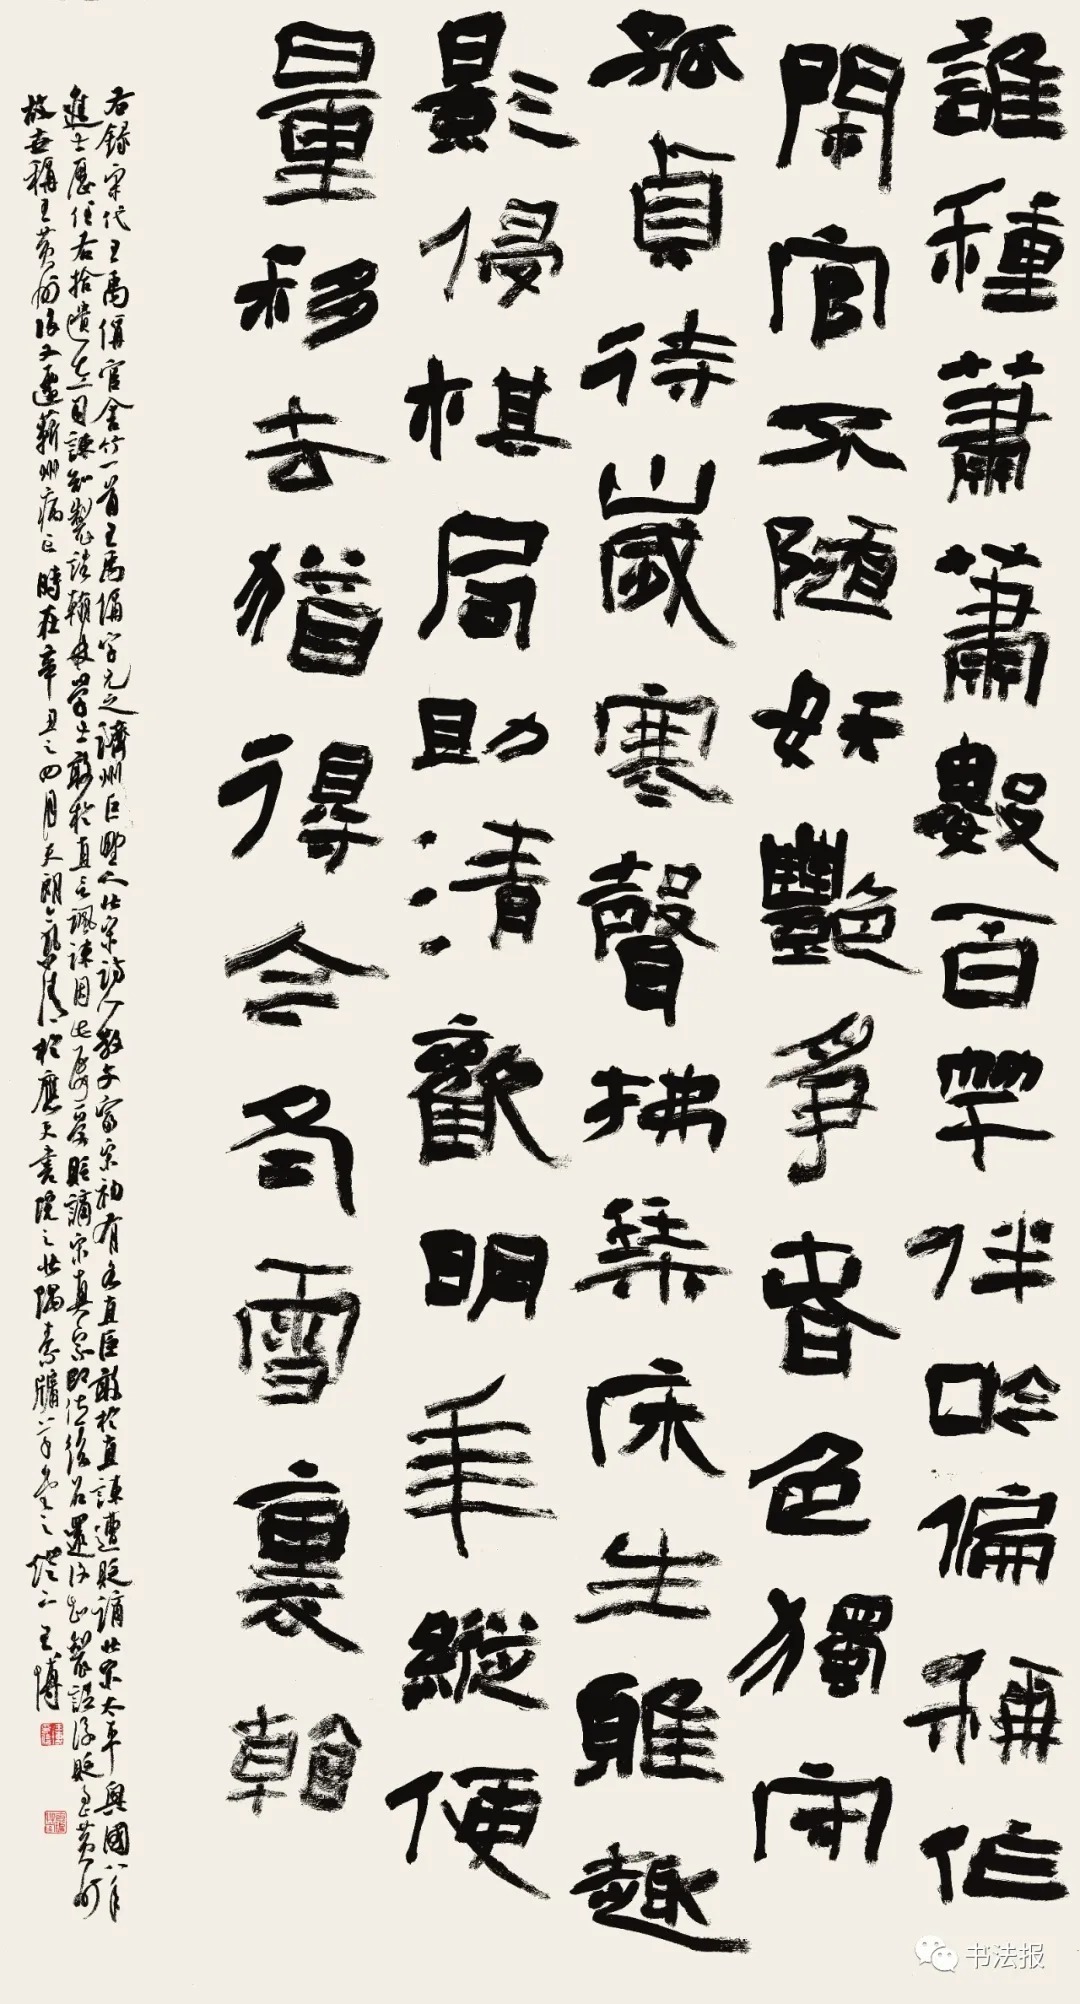 誰種蕭蕭數百竿伴吟偏稱作
閑官不隨妖艷爭春色獨守
孤貞待歲寒聲拂琴床生雅趣
影侵棋局助清歡明年縱便
量移去猶得今冬雪裏看
右錄宋代王禹偁官舍竹一首王禹偁字元之濟州巨野人北宋詩人散文家宋初有名直臣敢於直諫遭貶謫北宋太平興國八年
進士歷任右拾遺左司諫知製誥翰林學士敢於直言諷諫因此屢受貶謫宋真宗即位後召還復知製誥後貶至黃州
故世稱王黃州後又遷蘄州病亡時在辛丑之四月天朗氣清於應天書院之北隅 燈下王博
书法报